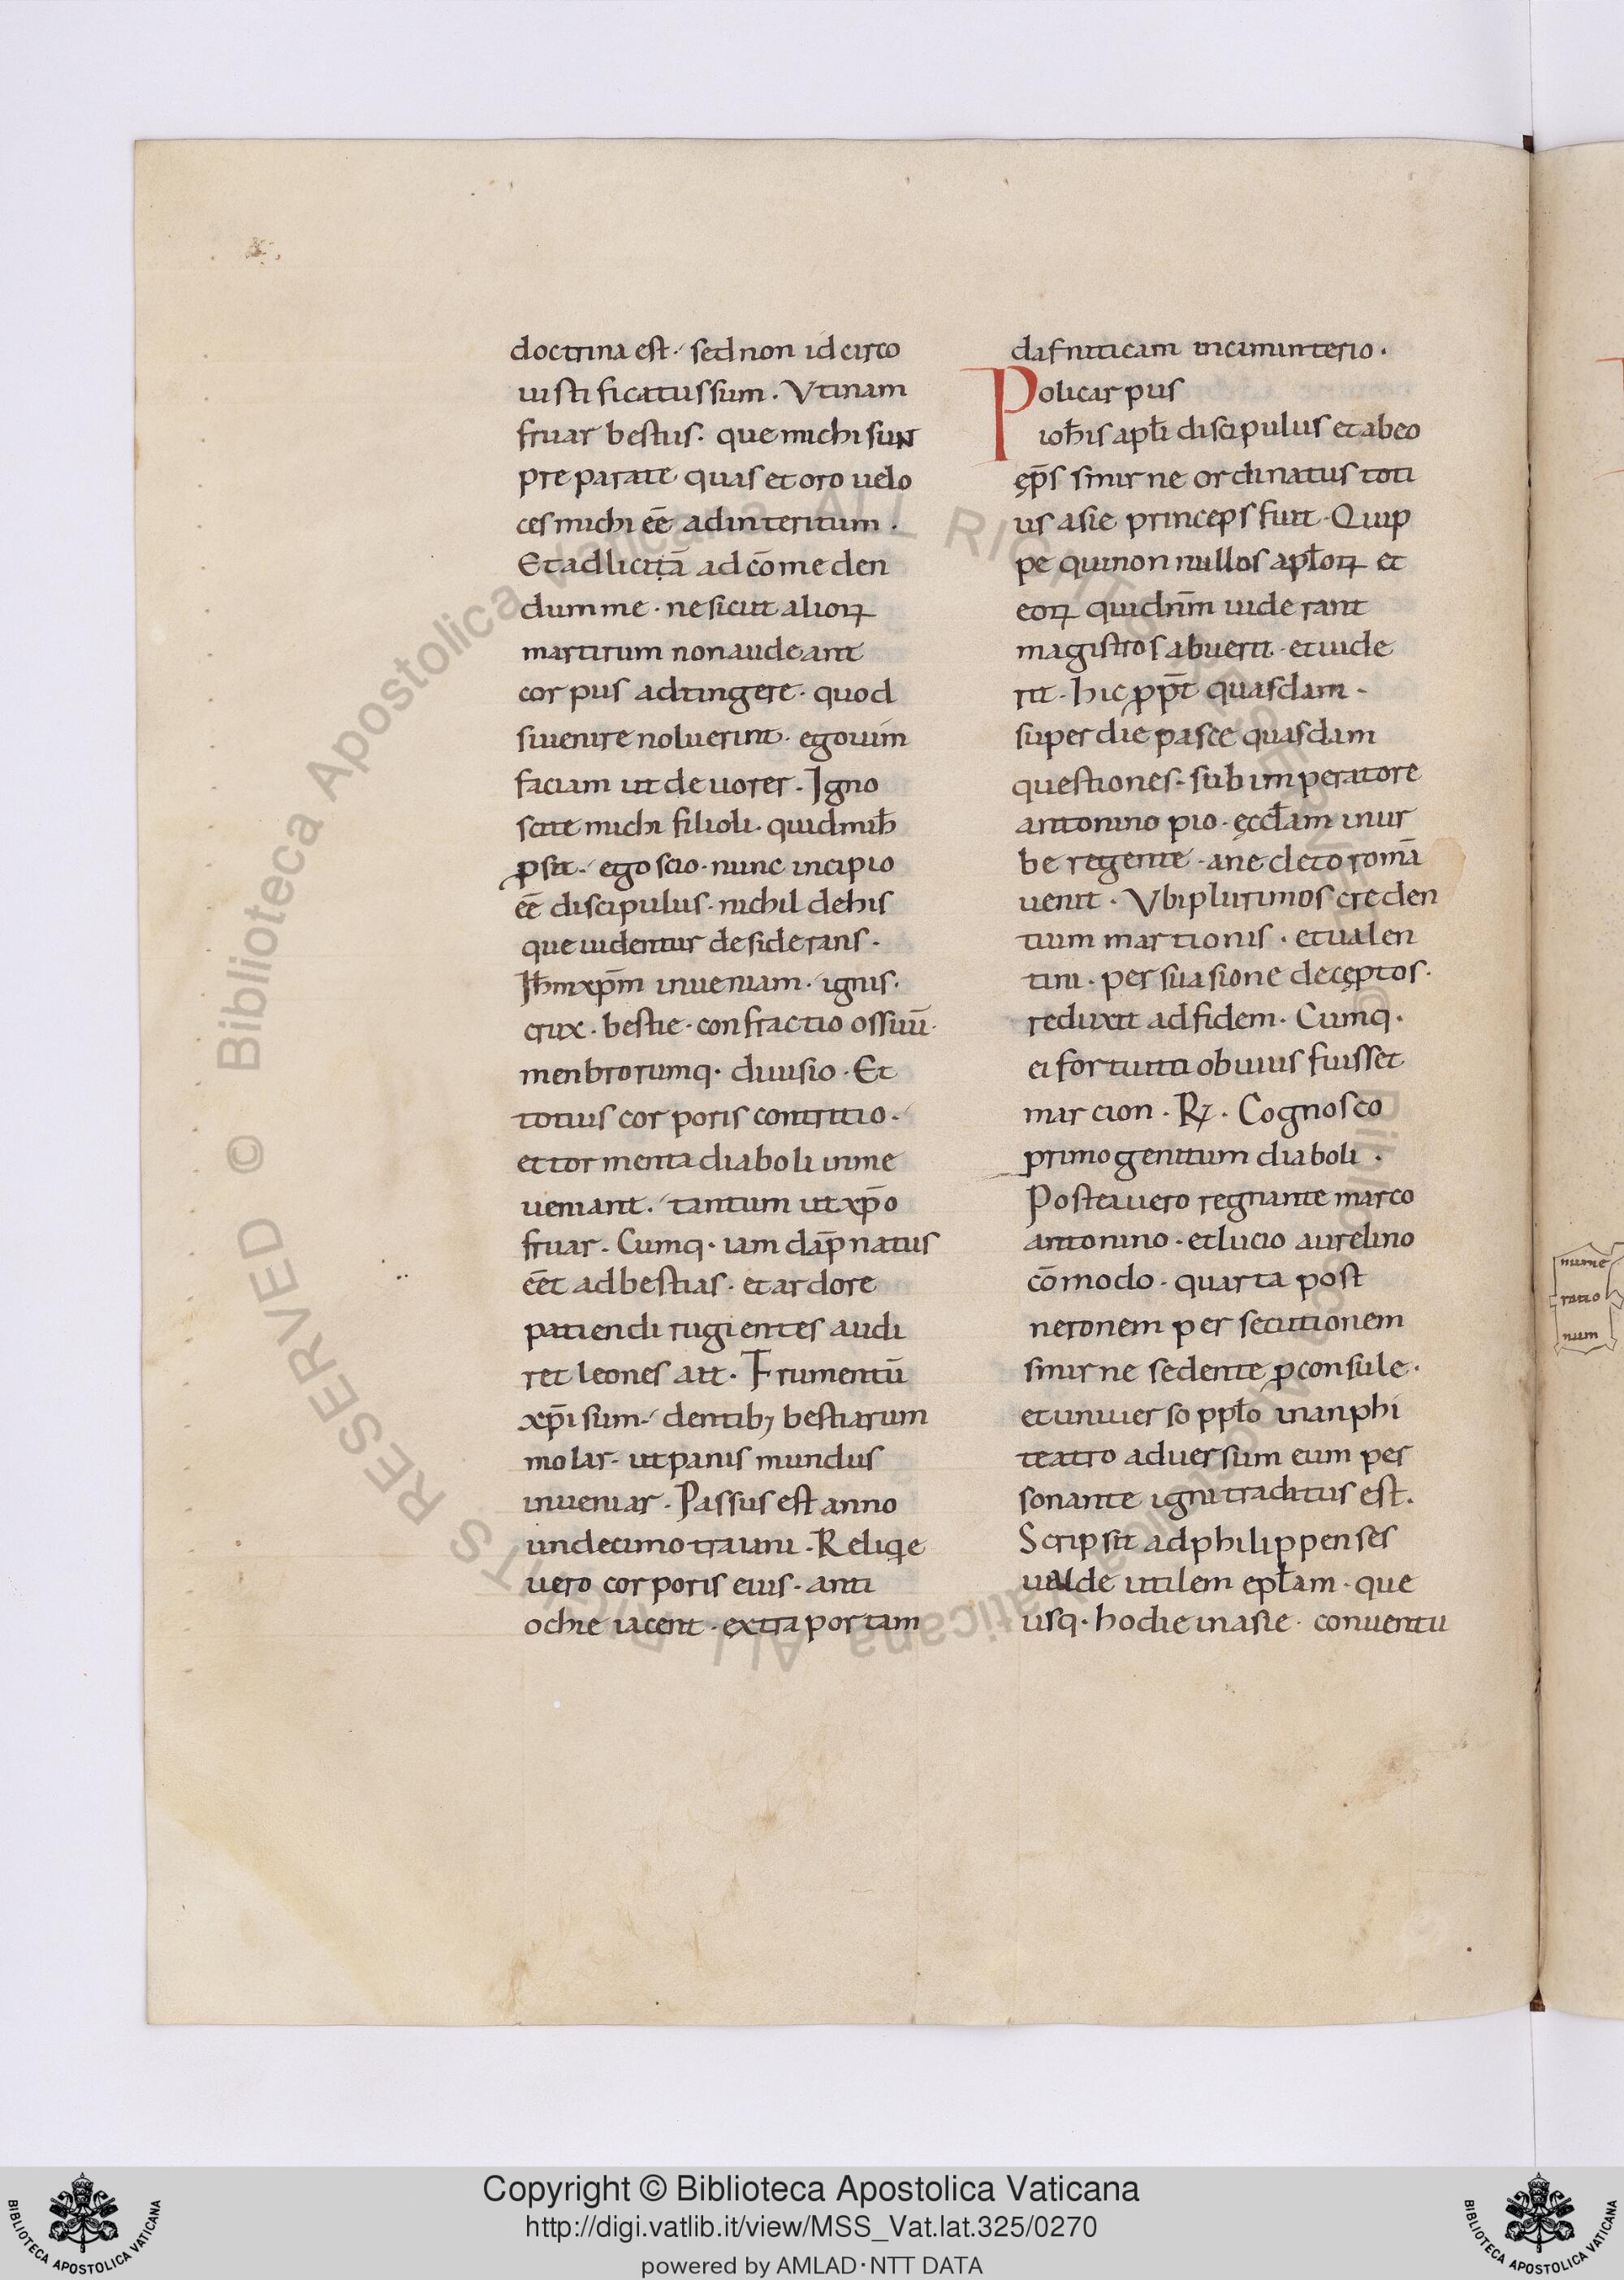 doctrina est· sed non idcirco
iustificatus sum. Vtinam
fruar bestiis· que michi sunt
preparate quas et oro uelo
ces michi eē ad interitum.
Et adlicitā ad cōmeden
dum me· ne sicut alioꝝ
martirum non audeant
corpus adtingere· quod
si uenire noluerint· ego uim
faciam ut deuorer. Igno
scite michi filioli· quid mih̄
ꝓsit· ego scio· nunc incipio
eē discipulus· nichil de his
que uidentur desiderans·
Ih̄m xp̄m inueniam· ignis·
crux· bestie· confractio ossiuū·
menbrorumq· diuisio· Et
totius corporis contritio·
et tormenta diaboli in me
ueniant· tantum ut xp̄o
fruar. Cumq· iam dāpnatus
eēt ad bestias· et ardore
patiendi rugientes audi
ret leones ait· Frumentū
xp̄i sum· dentibꝫ bestiarum
molar· ut panis mundus
inueniar. Passus est anno
undecimo traiani. Reliq̨e
uero corporis eius· anti
ochie iacent· extra portam
dafniticam in ciminterio.
Policarpus
ioh̄is apłi discipulus et ab eo
ęp̄s smirne ordinatus toti
us asie princeps fuit· Quip
pe qui nonnullos apłoꝝ et
eoꝝ qui dn̄m uiderant
magistros abuerit· et uide
rit· hic ꝓpt̄ quasdam·
super die pasce quasdam
questiones· sub imperatore
antonino pio· ęccłam in ur
be regente· anecleto romā
uenit· Vbi plurimos creden
tium martionis· et ualen
tini· persuasione decęptos·
reduxit ad fidem· Cumq·
ei fortuitu obuius fuisset
marcion· R̷· Cognosco
primogenitum diaboli·
Postea uero regnante marco
antonino· et lucio aurelino
cōmodo· quarta post
neronem persecutionem
smirne sedente ꝓconsule·
et uniuerso ppło in anphi
teatro aduersum eum per
sonante igni traditus est.
Scripsit ad philippenses
ualde utilem epłam· que
usq· hodie in asie· conuentu
nume
ratio
num
Copyright © Biblioteca Apostolica Vaticana
http://digi.vatlib.it/view/MSS_Vat.lat.325/0270
powered by AMLAD·NTT DATA